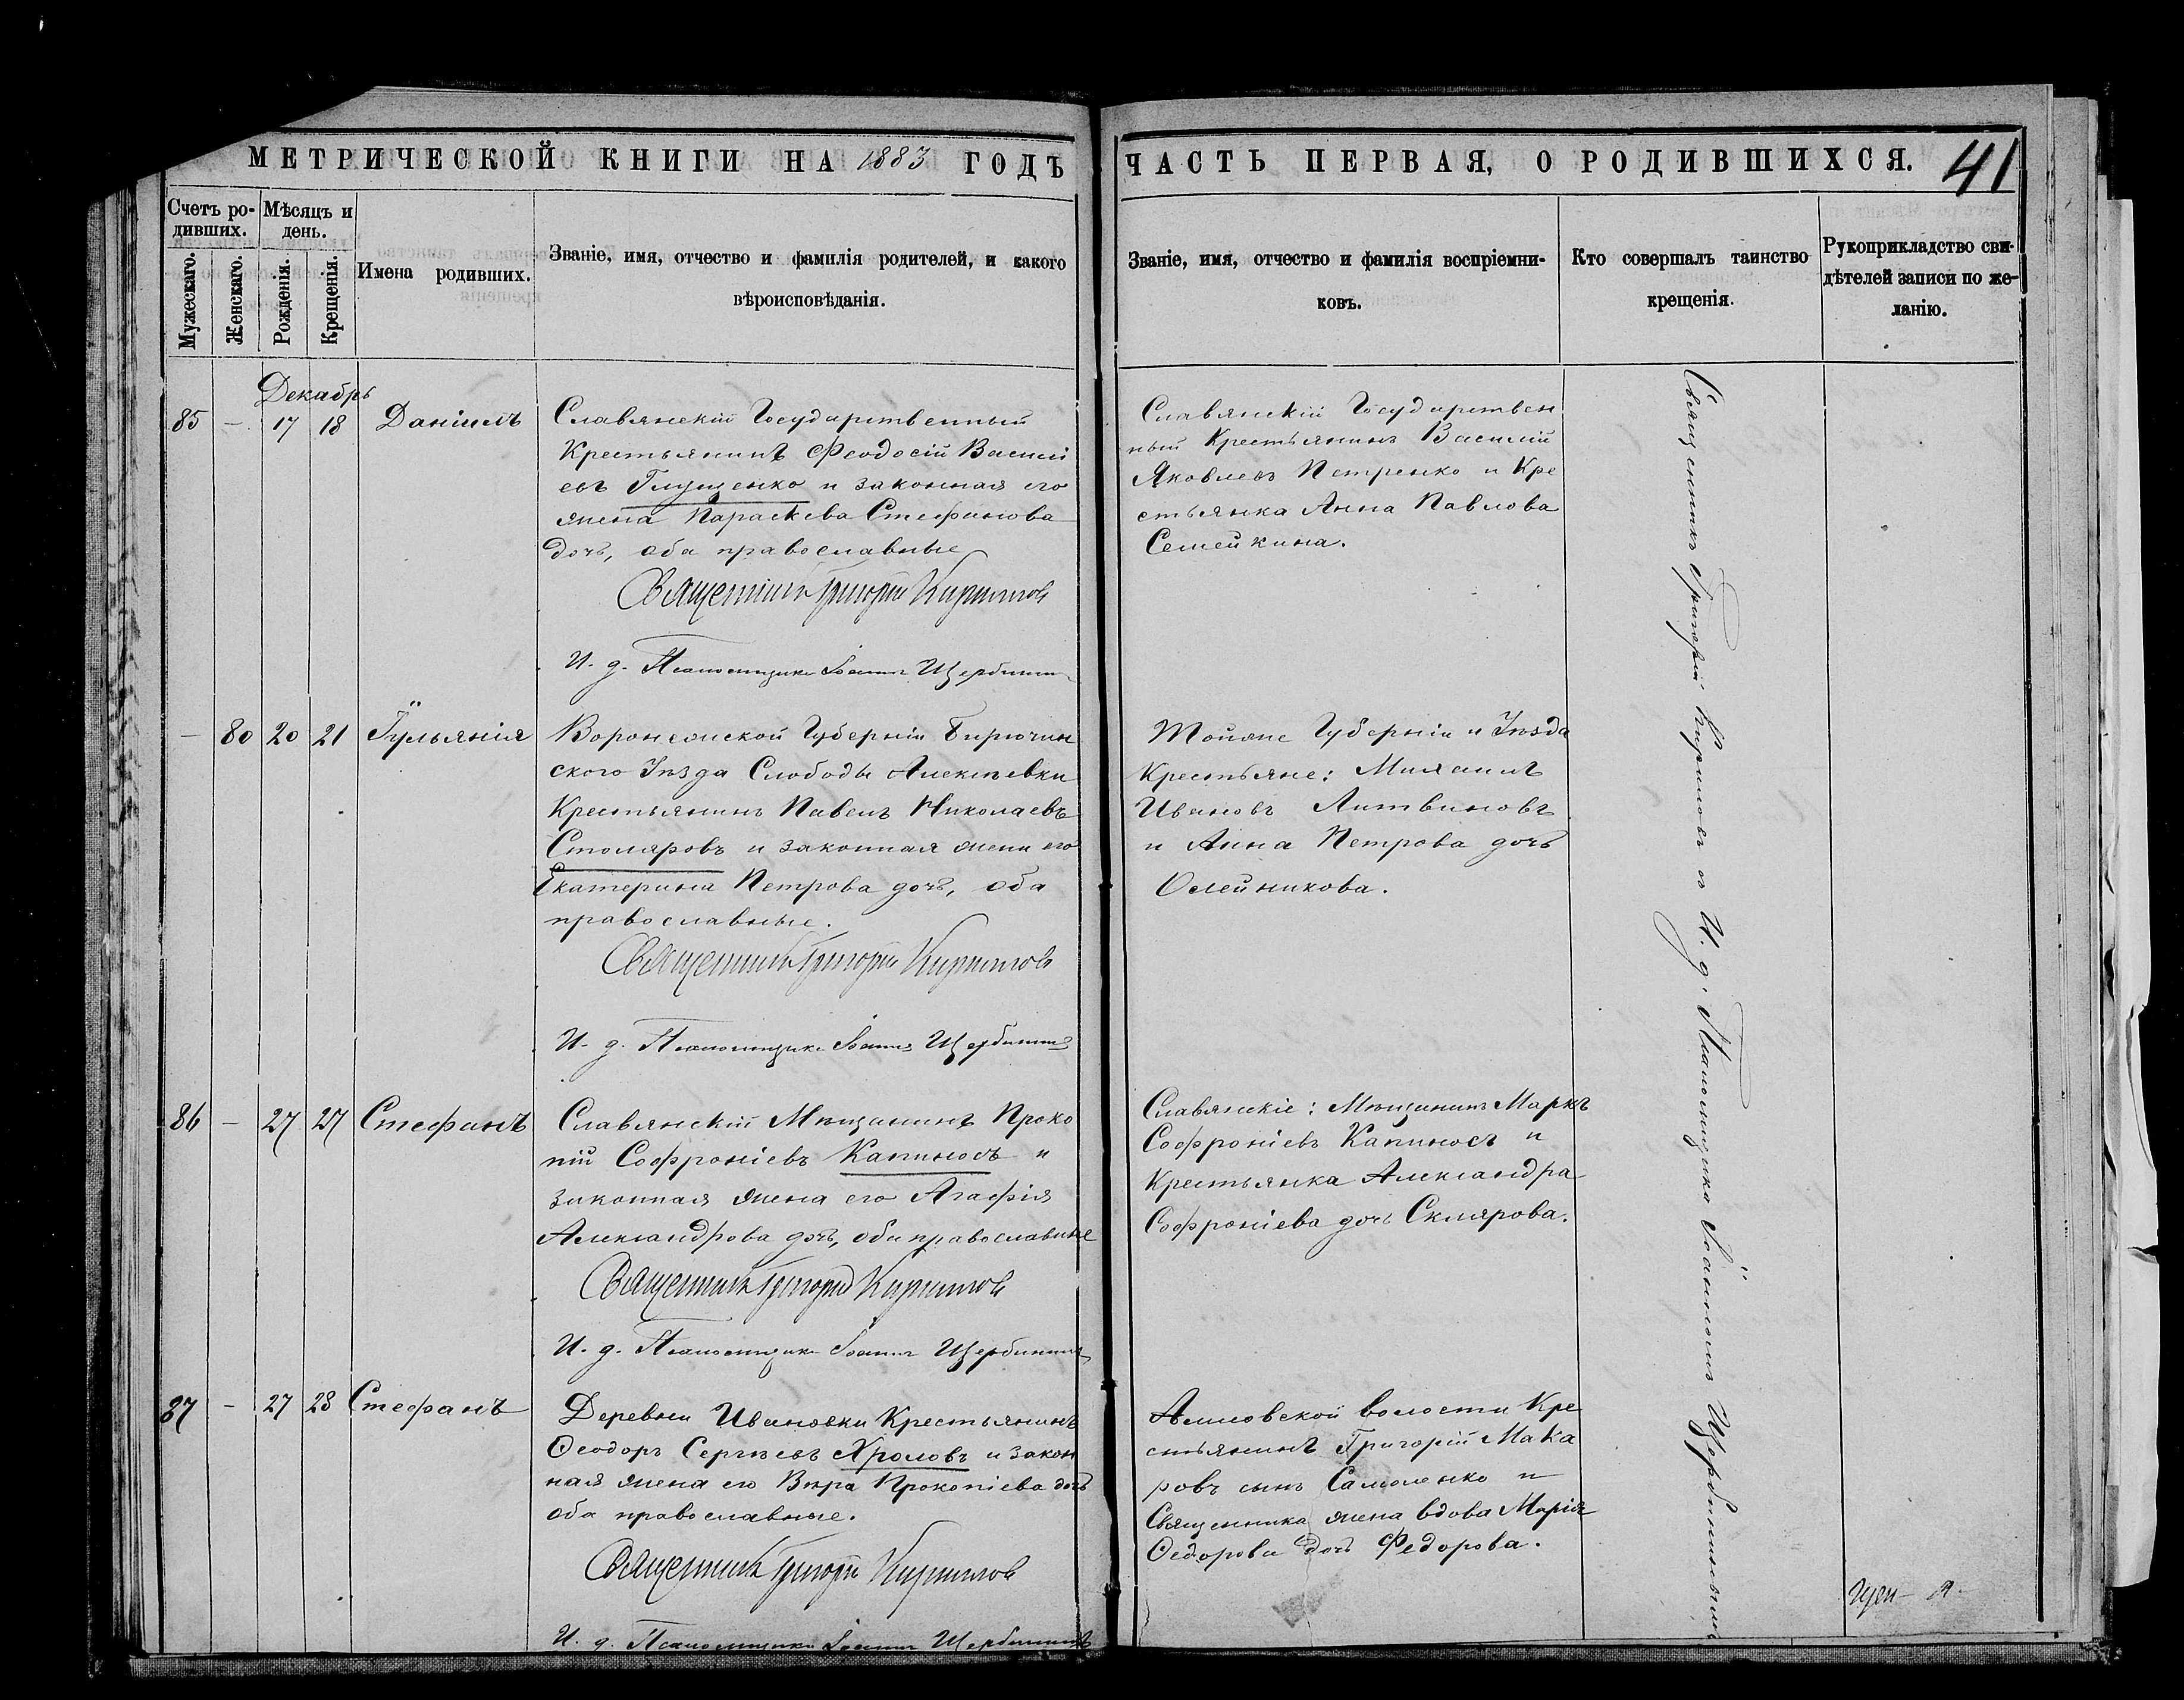 МЕТРИЧЕСКОЙ КНИГИ НА 1883 ГОДЪ
Счетъ ро-
дившихъ.
Мѣсяцъ и
день.
Мужескаго.
Женскаго.
Рожденія.
Крещенія.
Имена родившихъ.
Званіе, имя, отчество и фамилія родителей, и какого
вѣроисповѣданія.
Декабрь
85 — 17 18 Даніилъ
Славянскій Государственный
Крестьянинъ Феодосій Василі
евъ Глущенко и законная его
жена Параскева Стефанова
дочь, оба православные
Священникъ Григорій Кириловъ
И. д. Псаломщика Іоаннъ Щербининъ
— 80 20 21 Іульянія
Воронежской Губерніи Бирючин
скаго Уѣзда Слободы Алексѣевки
Крестьянинъ Павелъ Николаевъ
Столяровъ и законная жена его
Екатерина Петрова дочь, оба
православные.
Священникъ Григорій Кириловъ
И. д. Псаломщика Іоаннъ Щербининъ
86 — 27 27 Стефанъ
Славянскій Мѣщанинъ Проко
пій Софроніевъ Капиносъ и
законная жена его Агафія
Александрова дочь, оба православные
Священникъ Григорій Кириловъ
И. д. Псаломщика Іоаннъ Щербининъ
87 — 27 28 Стефанъ
Деревни Ивановки Крестьянинъ
Ѳеодоръ Сергѣевъ Хроловъ и закон
ная жена его Вѣра Прокопіева дочь
оба православные.
Священникъ Григорій Кириловъ
И. д. Псаломщика Іоаннъ Щербининъ
ЧАСТЬ ПЕРВАЯ, О РОДИВШИХСЯ. 41
Званіе, имя, отчество и фамилія воспріемни-
ковъ.
Кто совершалъ таинство
крещенія.
Рукоприкладство сви-
дѣтелей записи по же-
ланію.
Славянскій Государствен
ный Крестьянинъ Василій
Яковлевъ Петренко и Кре
стьянка Анна Павлова
Семейкина.
Тойже Губерніи и Уѣзда
Крестьяне: Михаилъ
Ивановъ Литвиновъ
и Анна Петрова дочь
Олейникова.
Славянскіе: Мѣщанинъ Маркъ
Софроніевъ Капиносъ и
Крестьянка Александра
Софроніева дочь Склярова.
волости Кре
стьянинъ Григорій Мака
ровъ сынъ Самоленко и
Священника жена вдова Марія
Ѳедорова дочь Федорова.
Священникъ Григорій Кириловъ съ И. д. Псаломщика Іоанномъ Щербининымъ